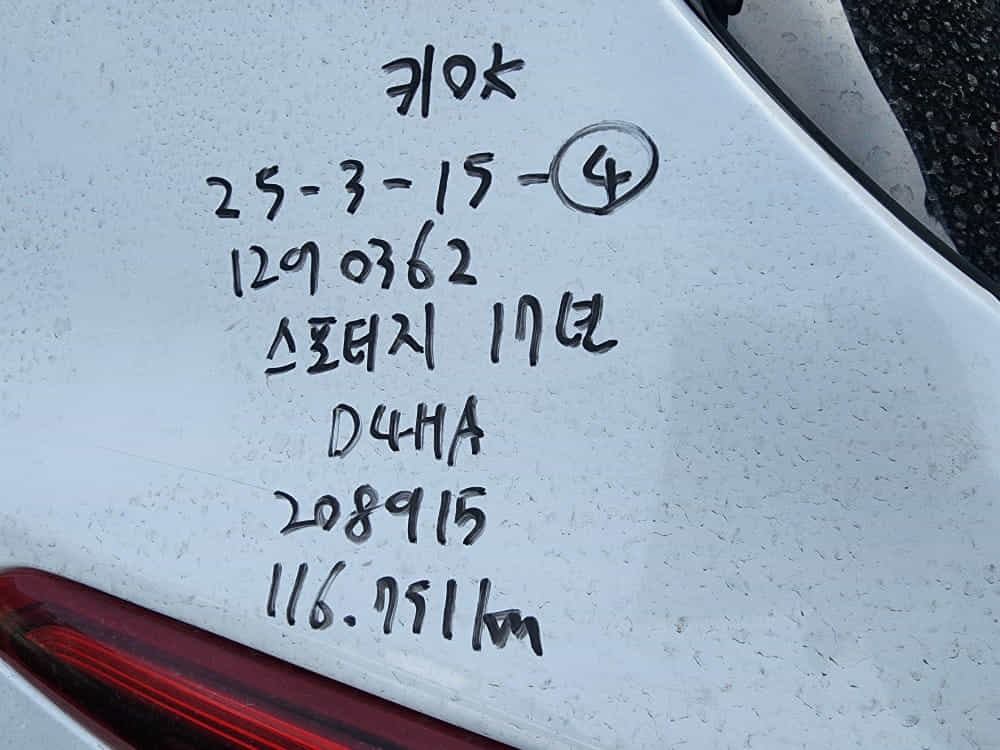 키 OK
25-3-15-④
1290362
스포터지 17년
D4HA
208915
116.751km